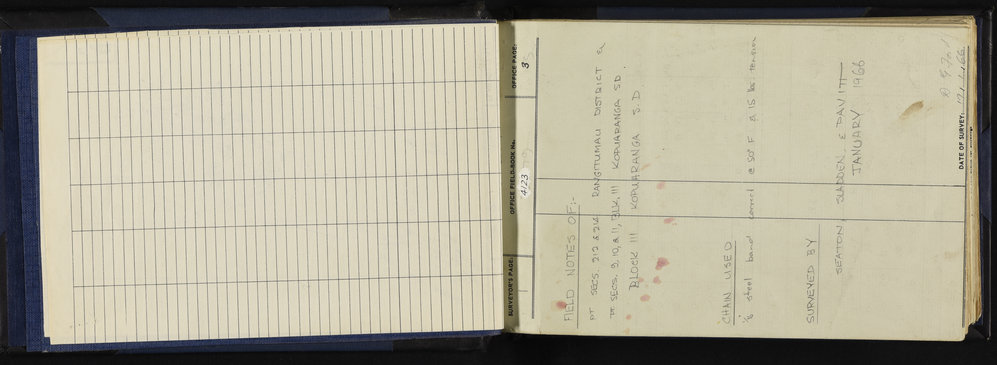 SURVEYOR'S PAGE:
OFFICE FIELD-BOOK No.
4123
OFFICE PAGE:
3
FIELD NOTES OF:-
PT SECS. 212 & 214 RANGITUMAU DISTRICT &
PT SECS. 9, 10, & 11, BLK. III KOPUARANGA SD.
BLOCK III KOPUARANGA S.D
CHAIN USED
steel band correct @ 50° F & 15 lbs tension
SURVEYED BY
SEATON, SLADDEN, & PAVITT
JANUARY 1966
DATE OF SURVEY: